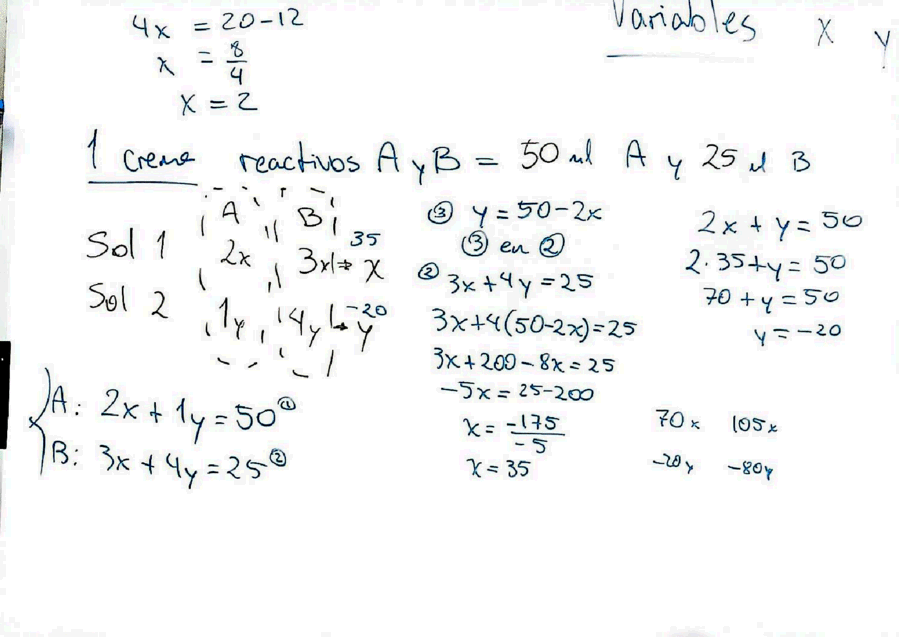 4x = 20-12
x = 8/4
x = 2
Variables x y
1 crema reactivos A y B = 50 ml A y 25 ml B
A B
Sol 1 2x 3x → x 35
Sol 2 1y 4y → y -20
A: 2x + 1y = 50 ①
B: 3x + 4y = 25 ②
③ y = 50-2x
③ en ②
② 3x+4y = 25
3x+4(50-2x)=25
3x+200-8x=25
-5x=25-200
x = -175/-5
x = 35
2x + y = 50
2·35+y = 50
70 + y = 50
y = -20
70x 105x
-20y -80y